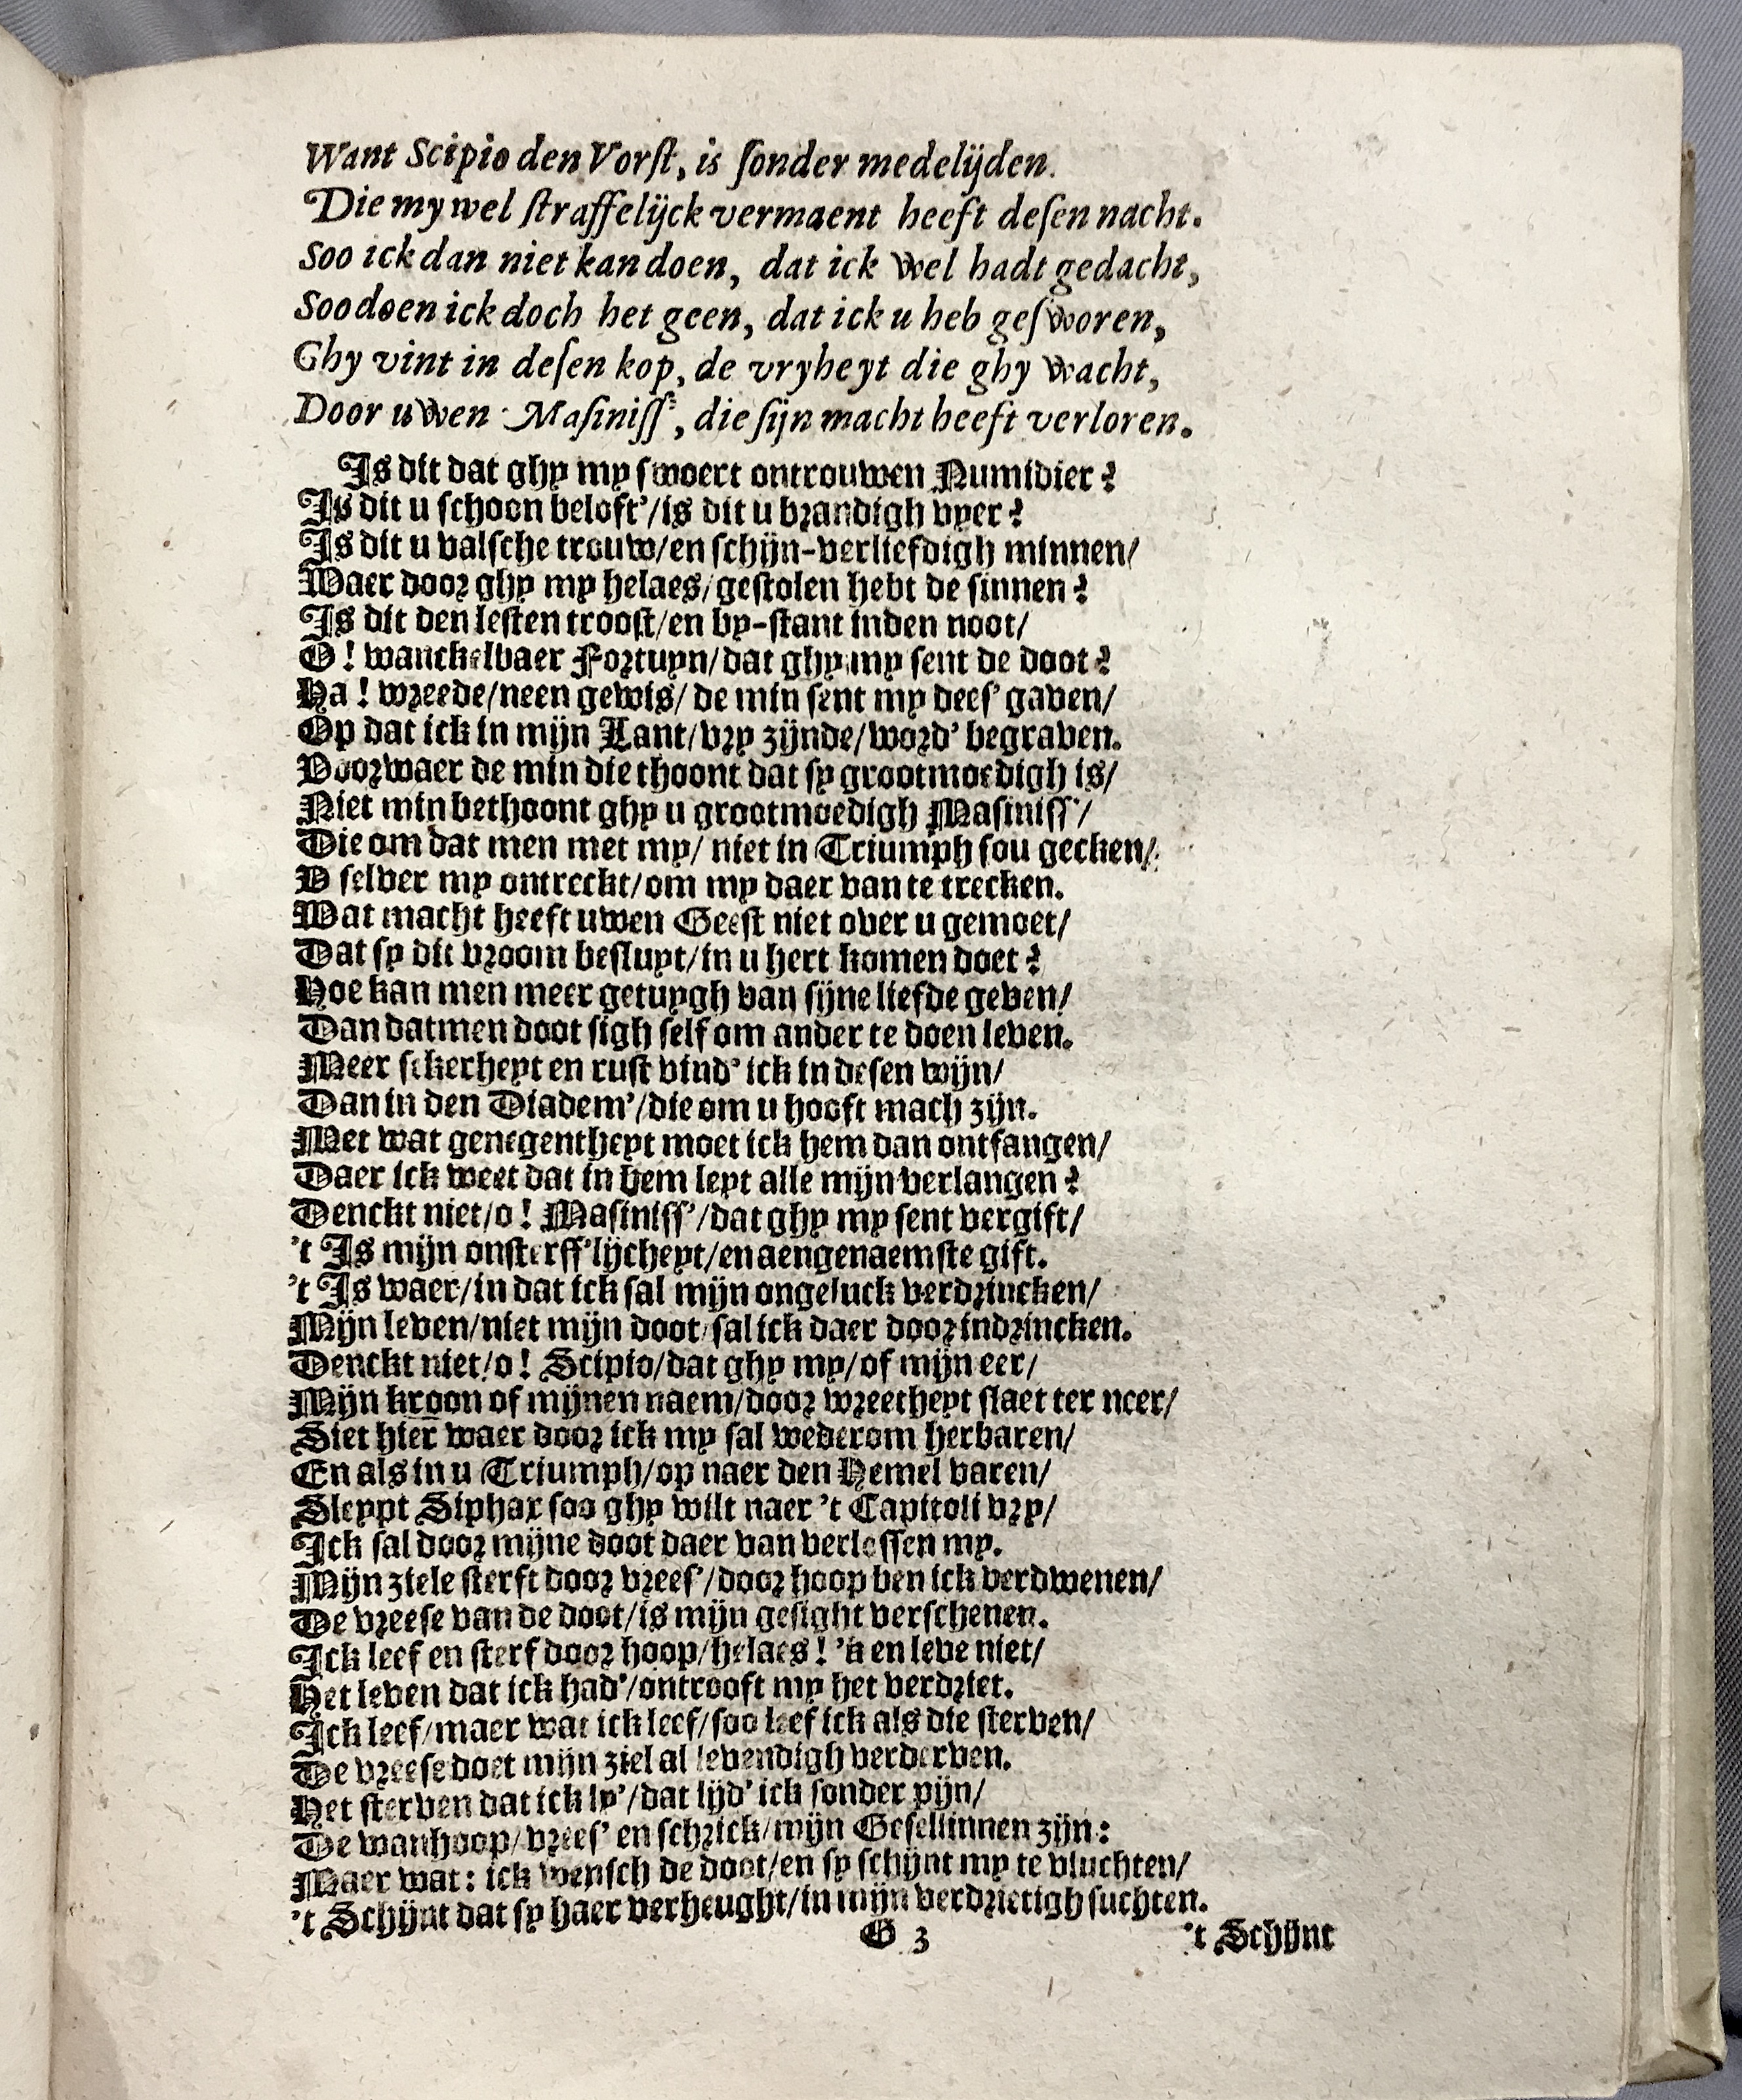 Want Scipio den Vorſt, is ſonder medelijden.
Die my wel ſtraffelijck vermaent heeft deſen nacht.
Soo ick dan niet kan doen, dat ick wel hadt gedacht,
Soo doen ick doch het geen, dat ick u heb geſworen,
Ghy vint in deſen kop, de vryheyt die ghy wacht,
Door uwen Maſiniſſ', die ſijn macht heeft verloren.
Is dit dat ghy my ſwoert ontrouwen Numidier?
Is dit u ſchoon beloft'/is dit u brandigh vyer?
Is dit u valſche trouw/en ſchijn-verliefdigh minnen/
Waer door ghy my helaes/geſtolen hebt de ſinnen?
Is dit den leſten trooſt/en by-ſtant inden noot/
O! wanckelbaer Fortuyn/dat ghy my ſent de doot?
Ha! wreede/neen gewis/de min ſent my deeſ' gaven/
Op dat ick in mijn Lant/vry zijnde/word' begraven.
Voorwaer de min die thoont dat ſy grootmoedigh is/
Niet min bethoont ghy u grootmoedigh Maſiniſſ'/
Die om dat men met my/ niet in Triumph ſou gecken/
V ſelver my ontreckt/om my daer van te trecken.
Wat macht heeft uwen Geeſt niet over u gemoet/
Dat ſy dit vroom beſluyt/in u hert komen doet?
Hoe kan men meer getuygh van ſijne liefde geven/
Dan datmen doot ſigh ſelf om ander te doen leven.
Meer ſekerheyt en ruſt vind' ick in deſen wijn/
Dan in den Diadem'/die om u hooft mach zijn.
Met wat genegentheyt moet ick hem dan ontfangen/
Daer ick weet dat in hem leyt alle mijn verlangen?
Denckt niet/o! Maſiniſſ'/dat ghy my ſent vergift/
't Is mijn onſterff'lijcheyt/en aengenaemſte gift.
't Is waer/in dat ick ſal mijn ongeluck verdrincken/
Mijn leven/niet mijn doot/ſal ick daer door indrincken.
Denckt niet/o! Scipio/dat ghy my/of mijn eer/
Mijn kroon of mijnen naem/door wreetheyt ſlaet ter neer/
Siet hier waer door ick my ſal wederom herbaren/
En als in u Triumph/op naer den Hemel varen/
Sleypt Siphax ſoo ghy wilt naer 't Capitoli vry/
Ick ſal door mijne doot daer van verloſſen my.
Mijn ziele ſterft door vreeſ'/door hoop ben ick verdwenen/
De vreeſe van de doot/is mijn geſight verſchenen.
Ick leef en ſterf door hoop/helaes! 'k en leve niet/
Het leven dat ick had'/ontrooft my het verdriet.
Ick leef/maer wat ick leef/ſoo leef ick als die ſterven/
De vreeſe doet mijn ziel al levendigh verderven.
Het ſterven dat ick ly'/dat lijd' ick ſonder pijn/
De wanhoop/vreeſ' en ſchrick/mijn Geſellinnen zijn:
Maer wat: ick wenſch de doot/en ſy ſchijnt my te vluchten/
't Schijnt dat ſy haer verheught/in mijn verdrietigh ſuchten.
G 3 't Schijnt